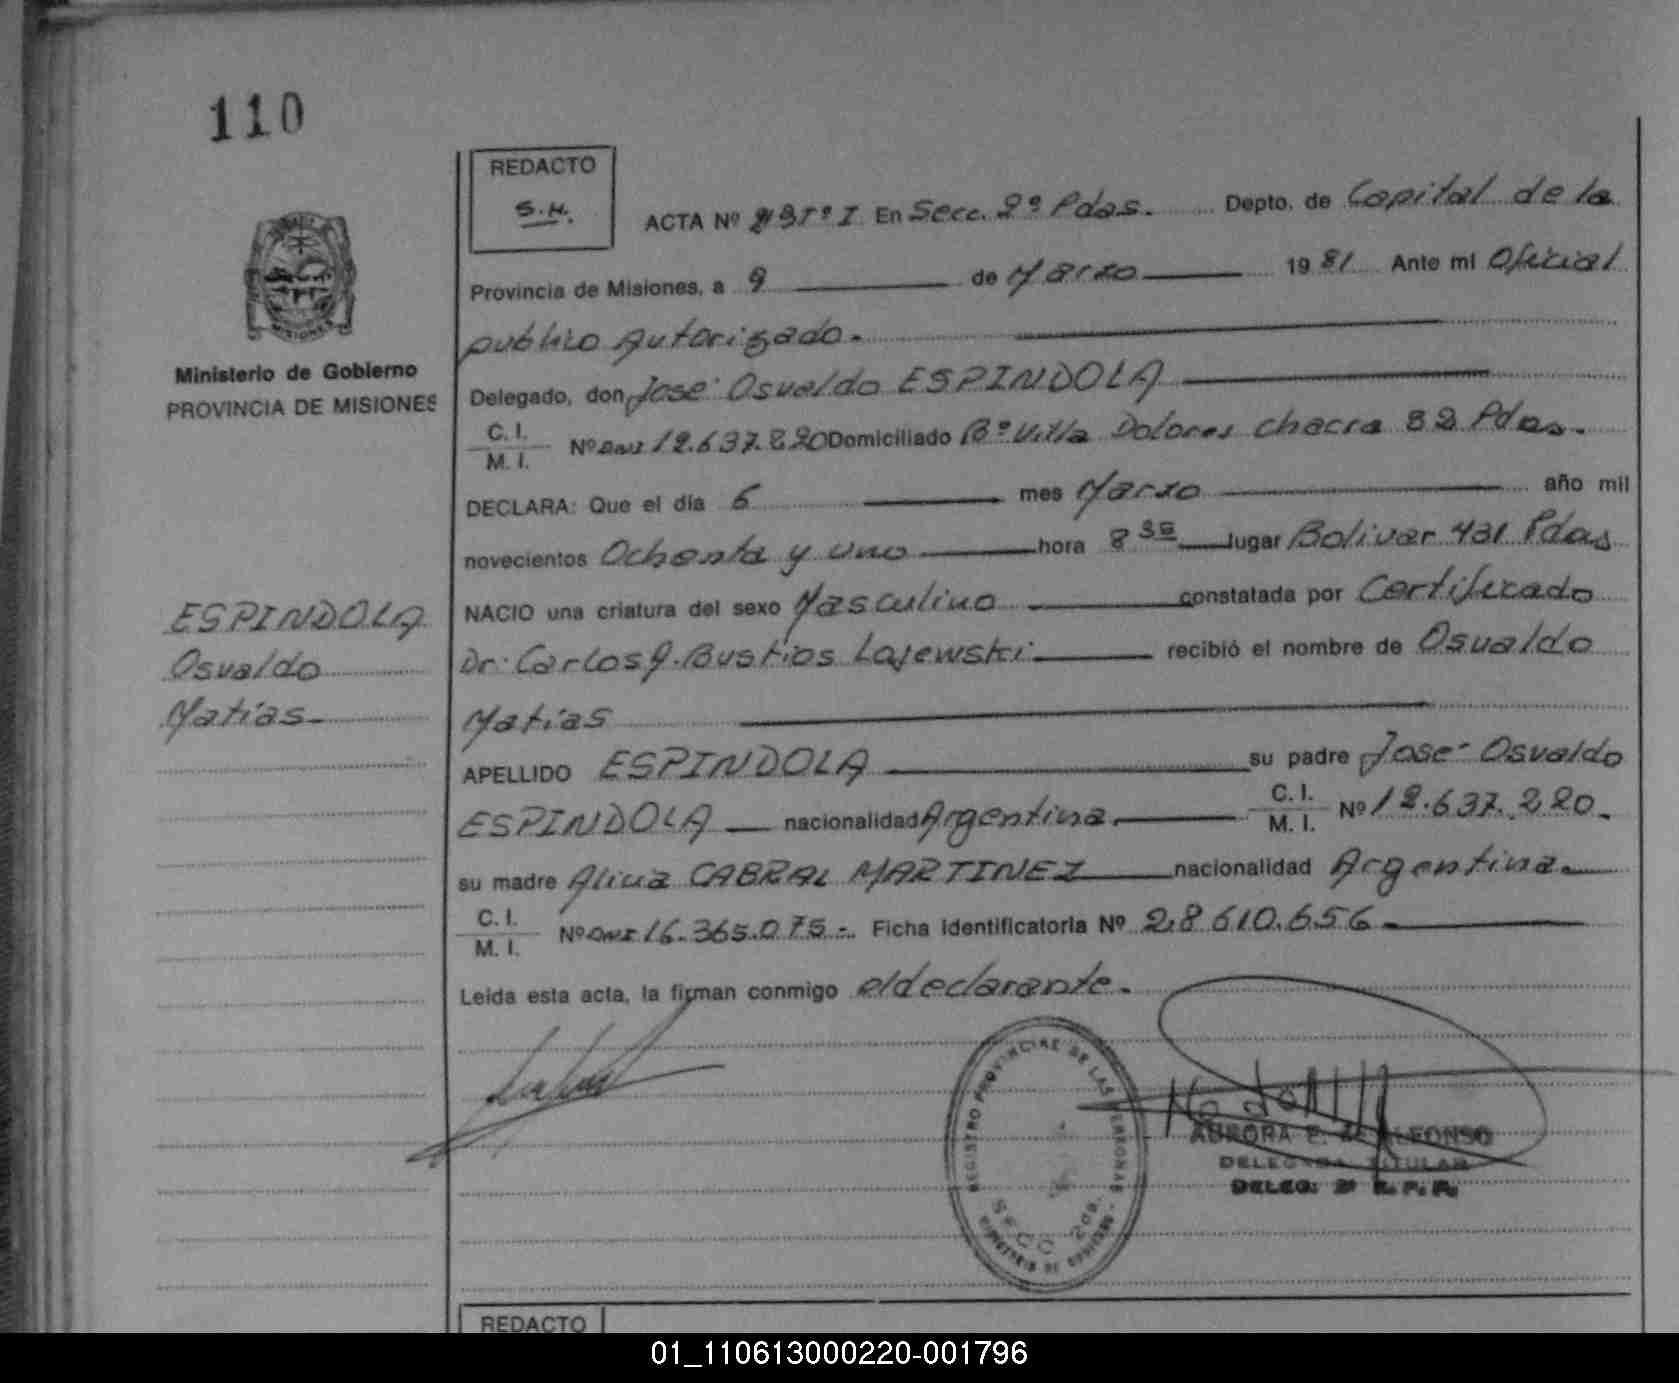 110
REDACTO
S.H.
ACTA Nº 219 Tº I En Secc. 2º Pdas. Depto. de Capital de la
Provincia de Misiones, a 9 de Marzo 1981 Ante mi Oficial
publico Autorizado.
MISIONES
Ministerio de Gobierno
PROVINCIA DE MISIONES
Delegado, don José Osvaldo ESPINDOLA
C. I.
M. I. Nº DNI 12.637.220 Domiciliado Bº Villa Dolores chacra 82 Pdas.
DECLARA: Que el día 6 mes Marzo año mil
novecientos Ochenta y uno hora 8 30 lugar Bolivar 431 Pdas
ESPINDOLA
Osvaldo
Matías
NACIO una criatura del sexo Masculino constatada por Certificado
Dr. Carlos J. Bustios Lajewski recibió el nombre de Osvaldo
Matías
APELLIDO ESPINDOLA su padre José Osvaldo
ESPINDOLA nacionalidad Argentina C. I. M. I. Nº 12.637.220.
su madre Alicia CABRAL MARTINEZ nacionalidad Argentina.
C. I.
M. I. Nº DNI 16.365.075.- Ficha Identificatoria Nº 28.610.656
Leída esta acta, la firman conmigo el declarante.
REGISTRO PROVINCIAL DE LAS PERSONAS
SECC 2da.
MINISTERIO DE GOBIERNO
AURORA E. DE ALFONSO
DELEGADA TITULAR
DELEG. 2ª R. P. P.
REDACTO
01_110613000220-001796